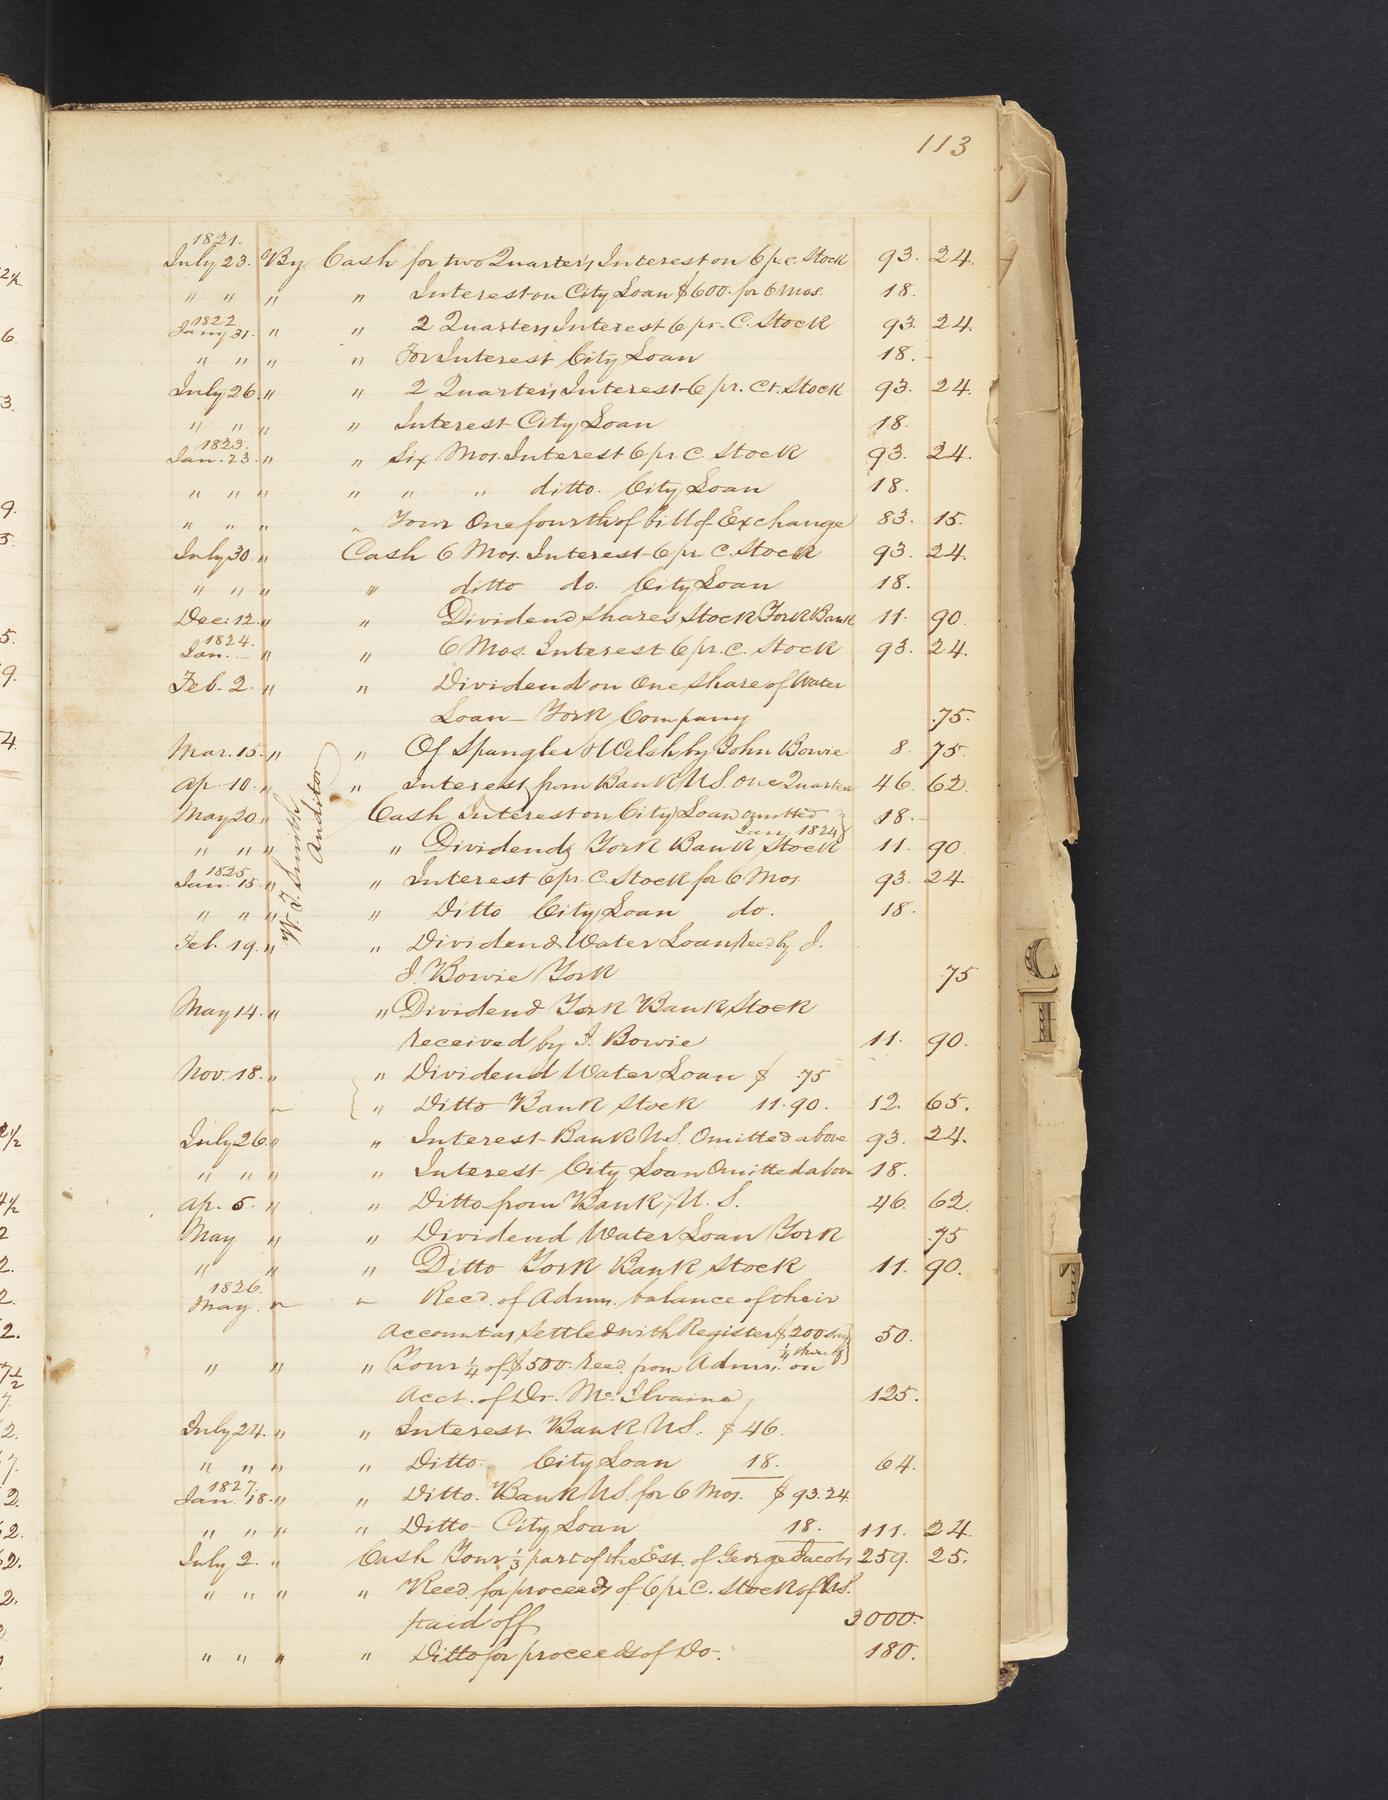 113
1821.
July 23. By Cash for two Quarters Interest on 6 pr. c. Stock 93. 24.
" " " " Interest on City Loan $600. for 6 Mos. 18.
1822
Jany 31. " " 2 Quarters Interest 6 pr. C. Stock 93. 24.
" " " " For Interest City Loan 18.
July 26. " " 2 Quarters Interest 6 pr. Ct. Stock 93. 24.
" " " " Interest City Loan 18.
1823.
Jan. 23. " " Six Mos. Interest 6 pr. C. Stock 93. 24.
" " " " " " ditto. City Loan 18.
" " " " Your One fourth of bill of Exchange 83. 15.
July 30. " Cash 6 Mos. Interest 6 pr C. Stock 93. 24.
" " " " ditto do. City Loan 18.
Dec: 12. " " Dividend shares Stock York Bank 11. 90.
1824.
Jan. " " 6 Mos. Interest 6 pr. C. Stock 93. 24.
Feb. 2. " " Dividend on One Share of Water
Loan - York Company .75.
Mar. 15. " " Of Spangler & Welsh by John Bowie 8. 75.
Ap. 10. " " Interest from Bank U.S. one Quarter 46. 62.
May 20. " Cash Interest on City Loan omitted 18.
Jan. 1824
" " " " Dividends York Bank Stock 11. 90.
1825.
Jan. 15. " " Interest 6 pr. C. Stock for 6 Mos. 93. 24.
" " " " Ditto City Loan do. 18.
Feb. 19. " " Dividend Water Loan Recd by J.
J. Bowie York .75
W. J. Smith
Auditor
May 14. " " Dividend York Bank Stock
received by J. Bowie 11. 90.
Nov. 18. " " Dividend Water Loan $ .75
" " Ditto Bank Stock 11.90. 12. 65.
July 26. " " Interest Bank U.S. Omitted above 93. 24.
" " " " Interest City Loan Omitted above 18.
Ap. 5. " " Ditto from Bank, U.S. 46. 62.
May " " Dividend Water Loan York .75
" " " Ditto York Bank Stock 11. 90.
1826.
May. " " Recd. of Admrs. balance of their
Account as settled with Register $200 say 50.
1/4 there of
" " " Your 1/4 of $500. recd. from Admrs. on
Acct. of Dr. McIlvaine, 125.
July 24. " " Interest Bank U.S. $46.
" " " " Ditto. City Loan 18. 64.
1827.
Jan. 18. " " Ditto. Bank U.S. for 6 Mos. $93.24
" " " " Ditto City Loan 18. 111. 24.
July 2. " Cash Your 1/3 part of the Est. of George Jacobs 259. 25.
" " " " Recd. for proceeds of 6 pr C. Stock of U.S.
paid off 3000.
" " " " Ditto for proceeds of Do. 180.